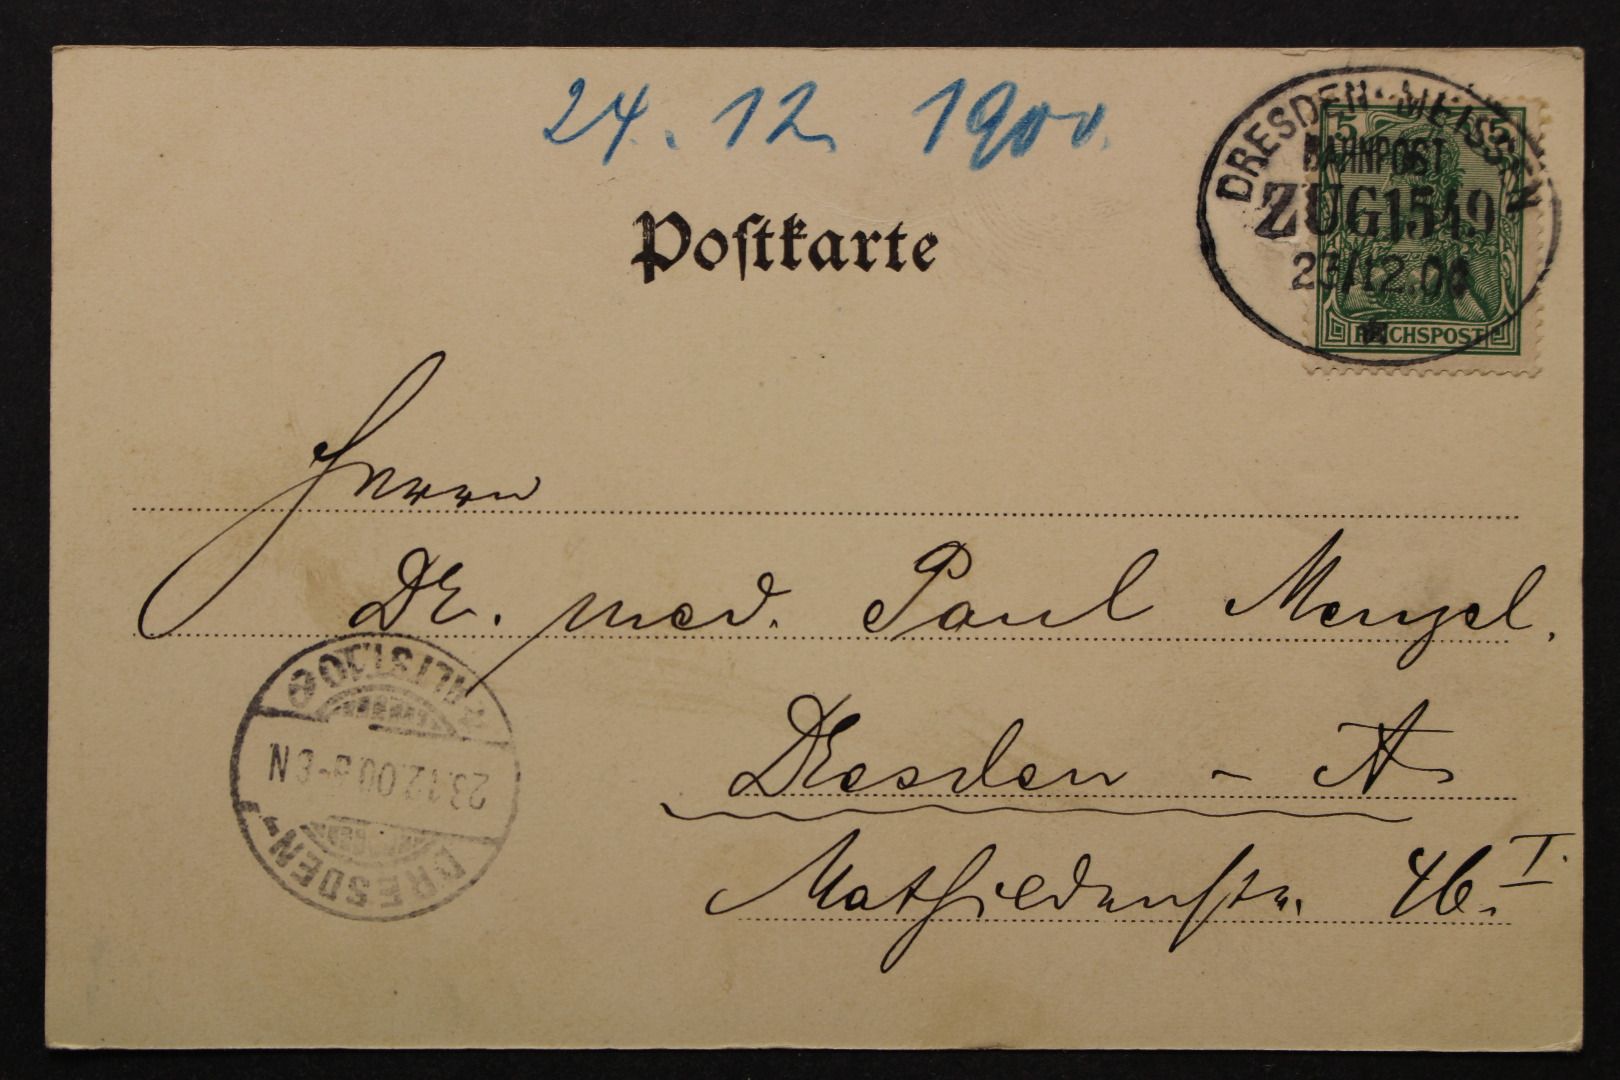 24. 12. 1900.
DRESDEN · MEISSEN
BAHNPOST
ZUG 1549
23/12.00
5
REICHSPOST
Postkarte
Herrn
Dr. med. Paul Menzel.
Dresden - A
Mathildenstr. 46. I.
DRESDEN-
23.12.00. 8-9 N
ALTST.